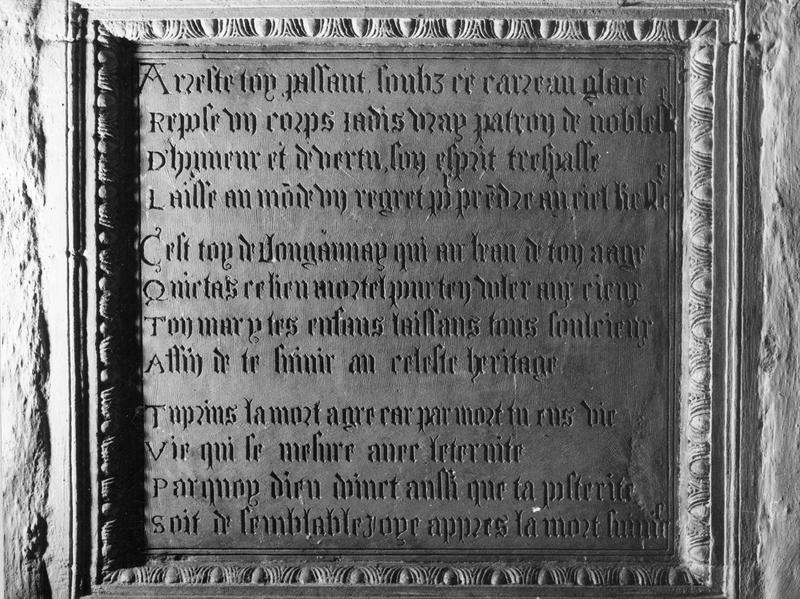 Arreste toy passant soubz ce carreau glace
Repose vn corps Jadis vray patron de noblesse
D'hőneur et de vertu, son esprit trespasse
Laisse au mōde vn regret pr prēdre au ciel liesse
Cest toy de Longaunay qui au beau de ton aage
Quictas ce lieu mortel pour ten voler aux cieux
Ton mary tes enfans laissans tous soulcieux
Affin de te suiuir au celeste heritage
Tu prins la mort a gre car par mort tu eus vie
Vie qui se mesure auec leternite
Parquoy dieu doinct aussi que ta posterite
Soit de semblable Joye appres la mort suiuie